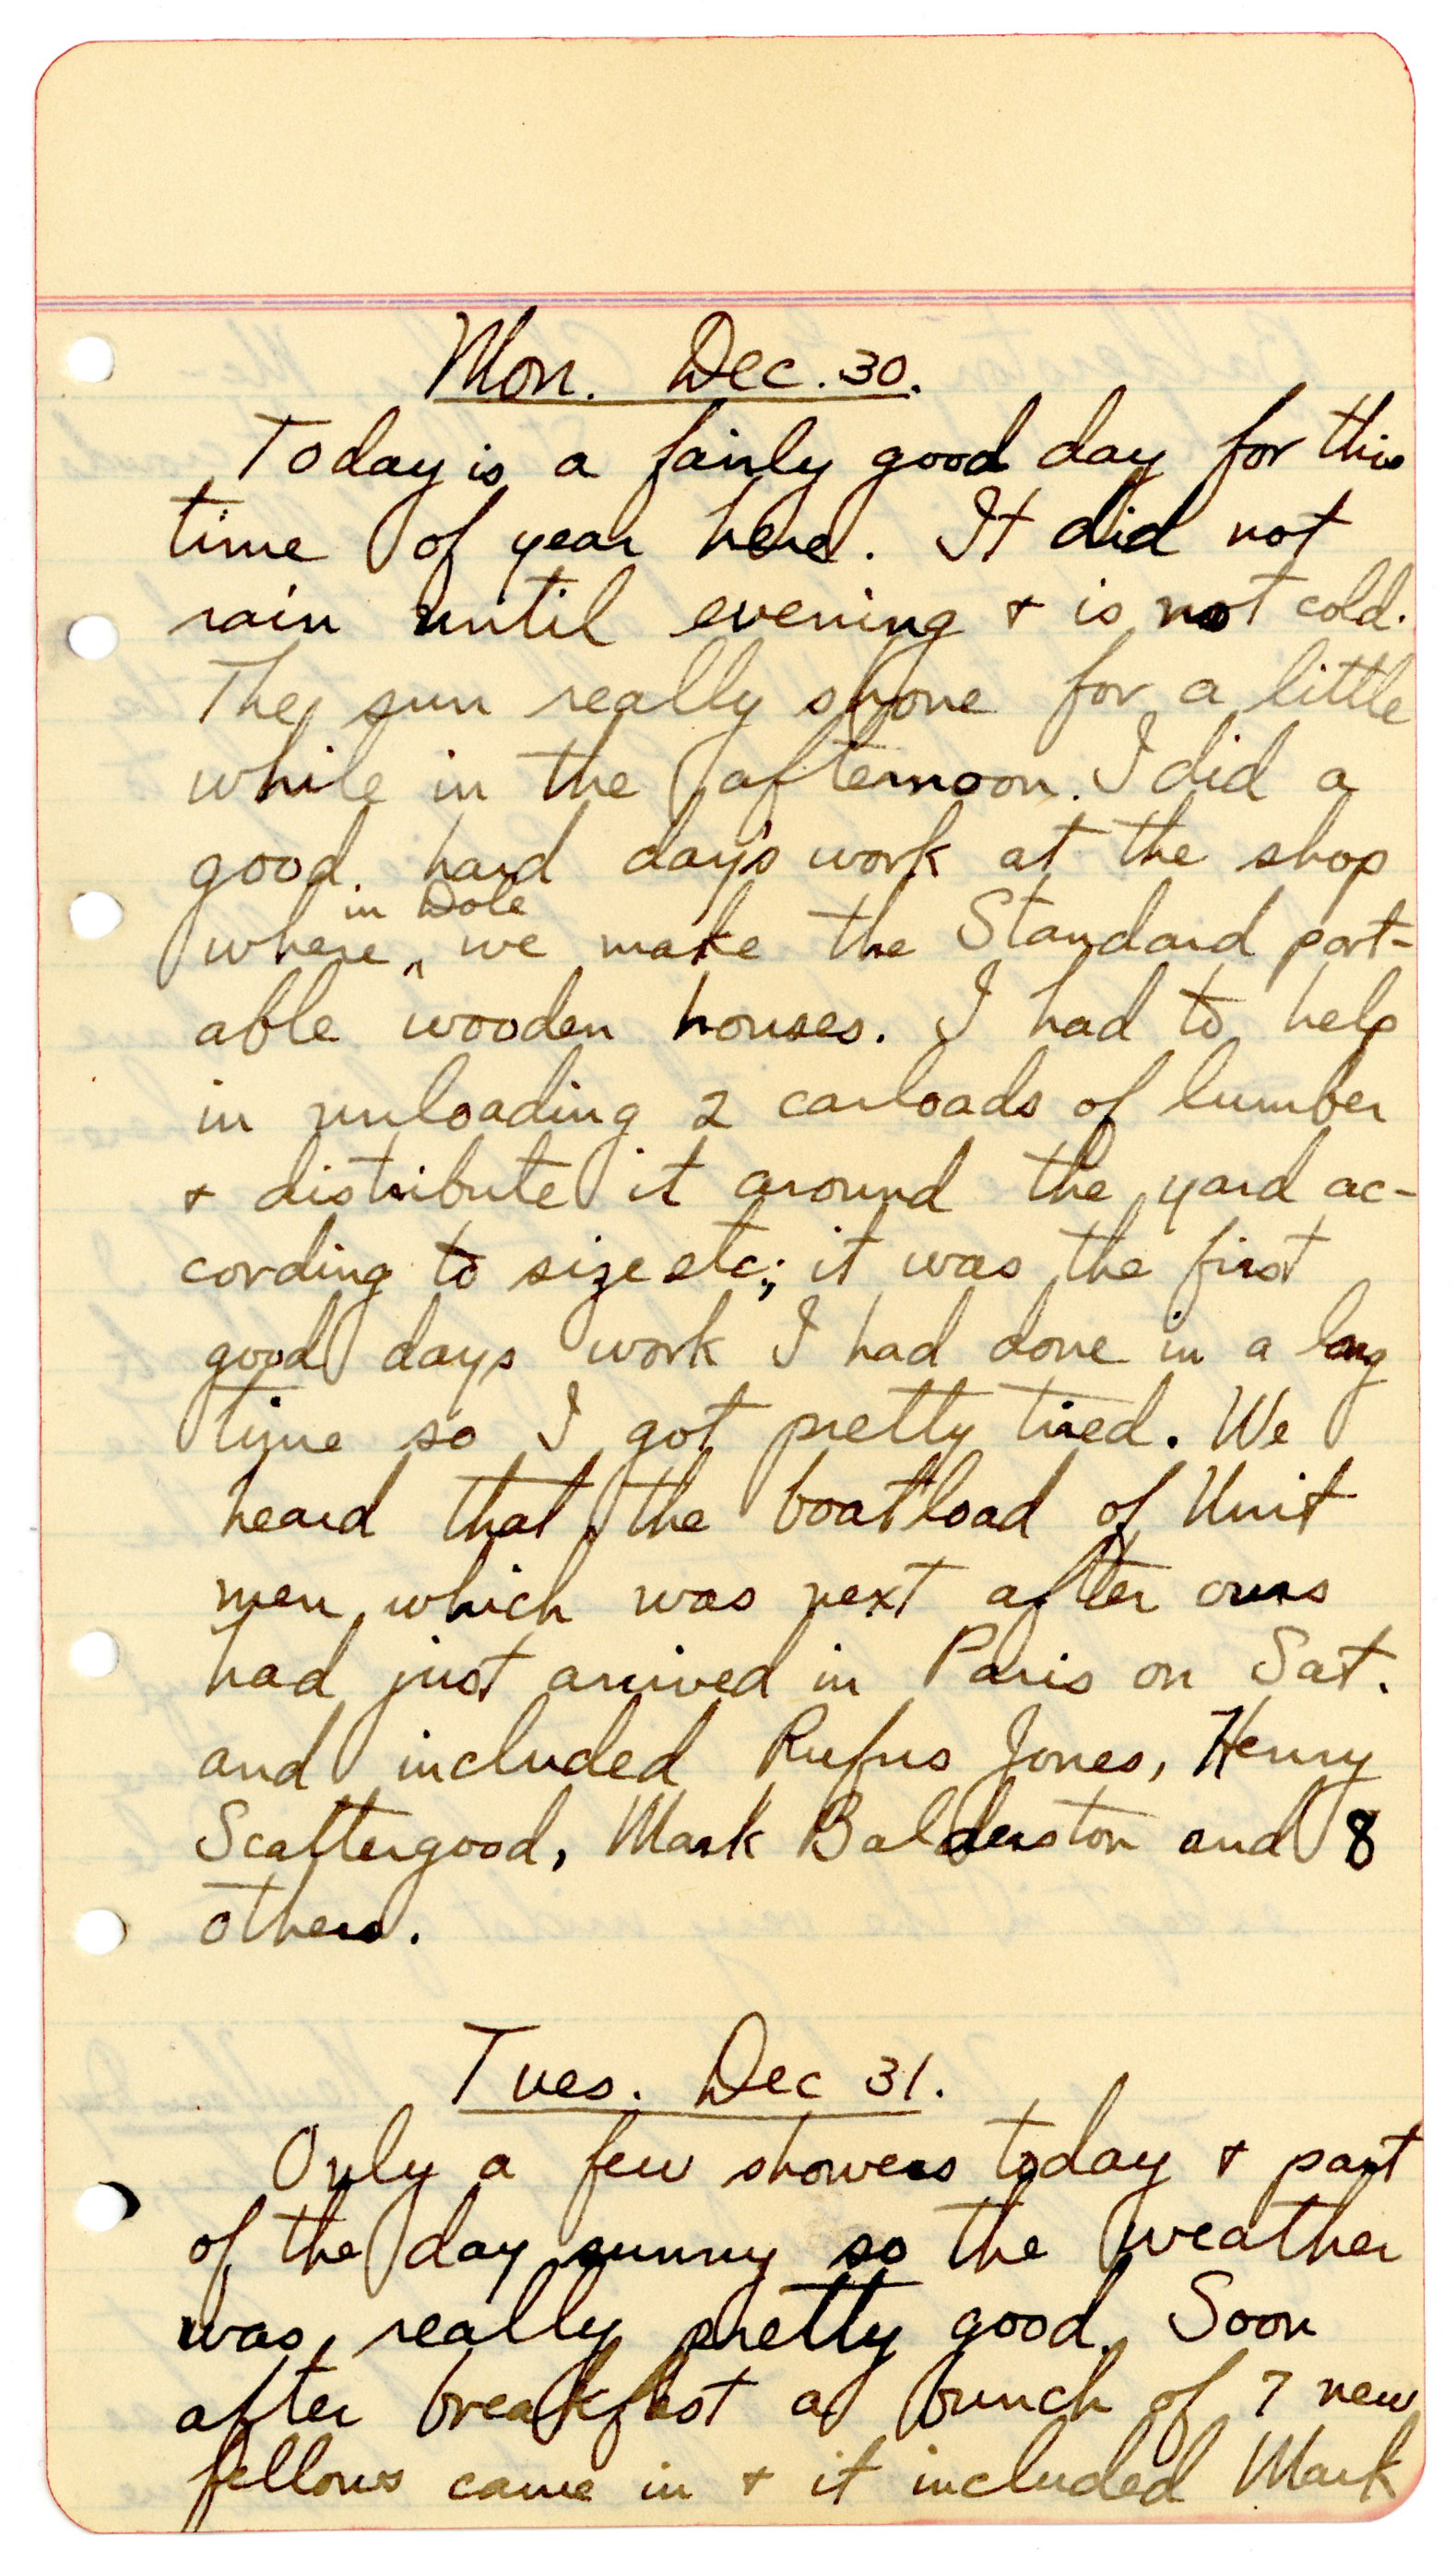 Mon. Dec. 30.
Today is a fairly good day for this
time of year here. It did not
rain until evening + is not cold.
The sun really shone for a little
while in the afternoon. I did a
good hard day's work at the shop
in Dole
where ^ we make the Standard port-
able wooden houses. I had to help
in unloading 2 carloads of lumber
+ distribute it around the yard ac-
cording to size etc; it was the first
good days work I had done in a long
time so I got pretty tired. We
heard that the boatload of Unit
men which was next after ours
had just arrived in Paris on Sat.
and included Rufus Jones, Henry
Scattergood, Mark Balderston and 8
others.
Tues. Dec 31.
Only a few showers today + part
of the day sunny so the weather
was really pretty good. Soon
after breakfast a bunch of 7 new
fellows came in + it included Mark